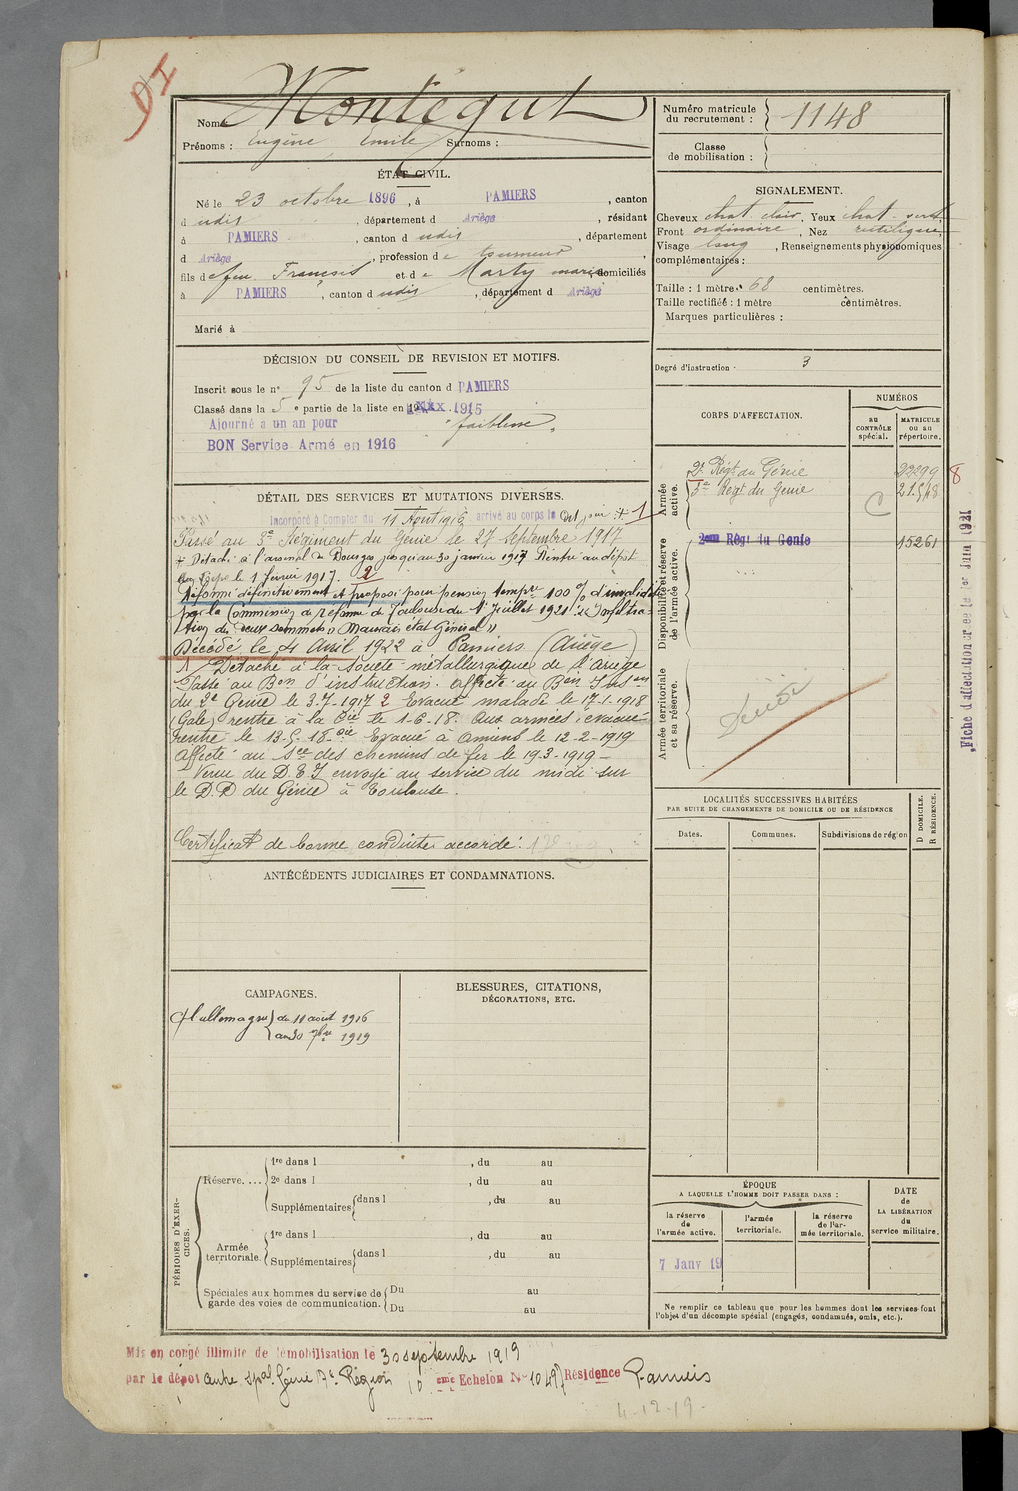 DI
Nom : Montégut
Prénoms : Eugène Emile Surnoms :
ÉTAT CIVIL.
Né le 23 octobre 1896, à PAMIERS, canton
d udis, département d Ariège, résidant
à PAMIERS, canton d udis, département
d Ariège, profession de tourneur,
fils de feu François et de Marty marie domiciliés
à PAMIERS, canton d udis, département d Ariège
Marié à
DÉCISION DU CONSEIL DE REVISION ET MOTIFS.
Inscrit sous le n° 95 de la liste du canton d PAMIERS
Classé dans la 5e partie de la liste en 1915
Ajourné a un an pour "faiblesse"
BON Service Armé en 1916
DÉTAIL DES SERVICES ET MUTATIONS DIVERSES.
Incorporé à Compter du 11 Aout 1916 arrivé au corps le dit jour * 1
Passé au 3e Régiment du Génie le 27 septembre 1917
* Détaché à l'arsenal de Bourges jusqu'au 30 janvier 1917 Rentré au dépôt
du Corps le 1 février 1917. 2
Réformé définitivement et proposé pour pension tempre 100 % d'invalidité
par la Commission de réforme de Toulouse du 1er Juillet 1921 "Infiltra-
tion des deux sommets Mauvais état Général"
Décédé le 4 Avril 1922 à Pamiers (Ariège)
1/ Détaché à la Société métallurgique de l'ariège
Passé au Bon d'instruction. affecté au Bon Inson
du 2e Génie le 3.7.1917 2 Evacué malade le 17.1.1918
(Gale) rentré à la Cie le 1-6-18. aux armées évacué
rentré le 13-5-18 Evacué à Amiens le 12-2-1919
affecté au Sce des chemins de fer le 19-3-1919 –
Venu du D.T.I envoyé au service du midi sur
le D.D du Génie à Toulouse.
Certificat de bonne conduite accordé :
ANTÉCÉDENTS JUDICIAIRES ET CONDAMNATIONS.
CAMPAGNES.
C/ l'allemagne du 11 août 1916
au 30 7bre 1919
BLESSURES, CITATIONS,
DÉCORATIONS, ETC.
PÉRIODES D'EXERCICES.
Réserve.... 1re dans l , du au
2e dans l , du au
Supplémentaires dans l , du au
Armée territoriale. 1re dans l , du au
Supplémentaires dans l , du au
Spéciales aux hommes du service de garde des voies de communication. Du au
Du au
Numéro matricule du recrutement : 1148
Classe de mobilisation :
SIGNALEMENT.
Cheveux chat. clair, Yeux chat. verd
Front ordinaire, Nez rectiligne,
Visage long, Renseignements physionomiques
complémentaires :
Taille : 1 mètre 68 centimètres.
Taille rectifiée : 1 mètre centimètres.
Marques particulières :
Degré d'instruction. 3
CORPS D'AFFECTATION.
NUMÉROS
au CONTRÔLE spécial.
MATRICULE ou au répertoire.
Armée active.
2e Régt du Génie 22299 8
3e Régt du Génie C 21.548
Disponibilité et réserve de l'armée active.
2eme Régt du Genie 15261
Armée territoriale et sa réserve.
Décédé
"Fiche d'affectation créée le 1er Juin 1921
LOCALITÉS SUCCESSIVES HABITÉES
PAR SUITE DE CHANGEMENTS DE DOMICILE OU DE RÉSIDENCE
D DOMICILE.
R RÉSIDENCE.
Dates. Communes. Subdivisions de région
ÉPOQUE
A LAQUELLE L'HOMME DOIT PASSER DANS :
la réserve de l'armée active.
l'armée territoriale.
la réserve de l'armée territoriale.
DATE de LA LIBÉRATION du service militaire.
7 Janv 19
Ne remplir ce tableau que pour les hommes dont les services font
l'objet d'un décompte spécial (engagés, condamnés, omis, etc.).
Mis en congé illimité de démobilisation le 30 septembre 1919
par le dépôt Génie 17e Région 10 eme Echelon N° 1049 Résidence Pamiers
4-12-19-